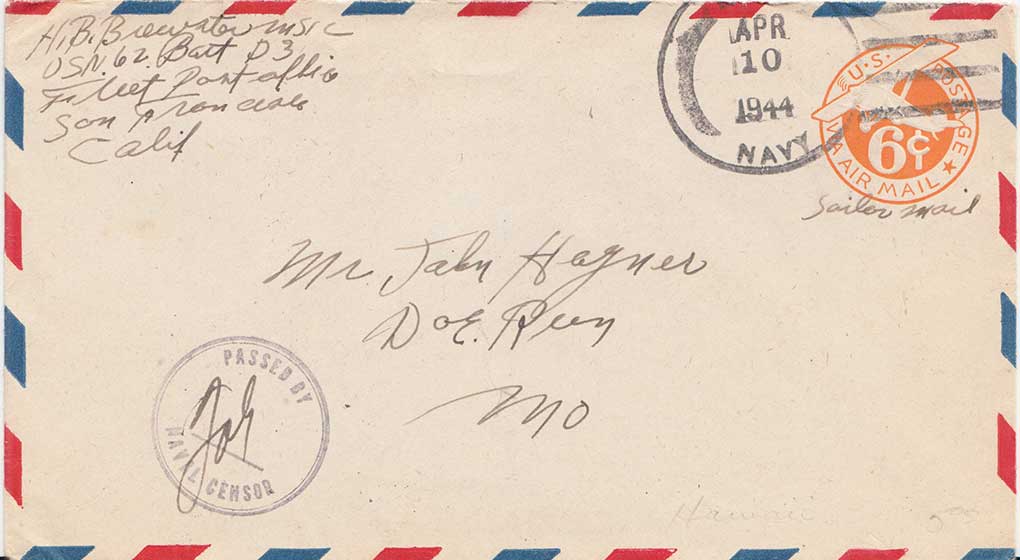 H.B. Brewster MS1C
USN. 62. Batt D3
Fleet Post office
San Francisco
Calif
APR
10
1944
NAVY
U.S. POSTAGE
6¢
VIA AIR MAIL
Sailor mail
Mr. John Hagner
Doe. Run
Mo
PASSED BY
NAVAL CENSOR
Hawaii
5.00